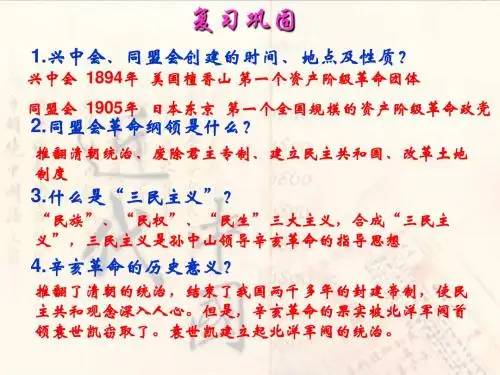 复习巩固
1.兴中会、同盟会创建的时间、地点及性质？
兴中会 1894年 美国檀香山 第一个资产阶级革命团体
同盟会 1905年 日本东京 第一个全国规模的资产阶级革命政党
2.同盟会革命纲领是什么？
推翻清朝统治、废除君主专制、建立民主共和国、改革土地
制度
3.什么是“三民主义”？
“民族”、“民权”、“民生”三大主义，合成“三民主
义”，三民主义是孙中山领导辛亥革命的指导思想
4.辛亥革命的历史意义？
推翻了清朝的统治，结束了我国两千多年的封建帝制，使民
主共和观念深入人心。但是，辛亥革命的果实被北洋军阀首
领袁世凯窃取了。袁世凯建立起北洋军阀的统治。
近代
中国